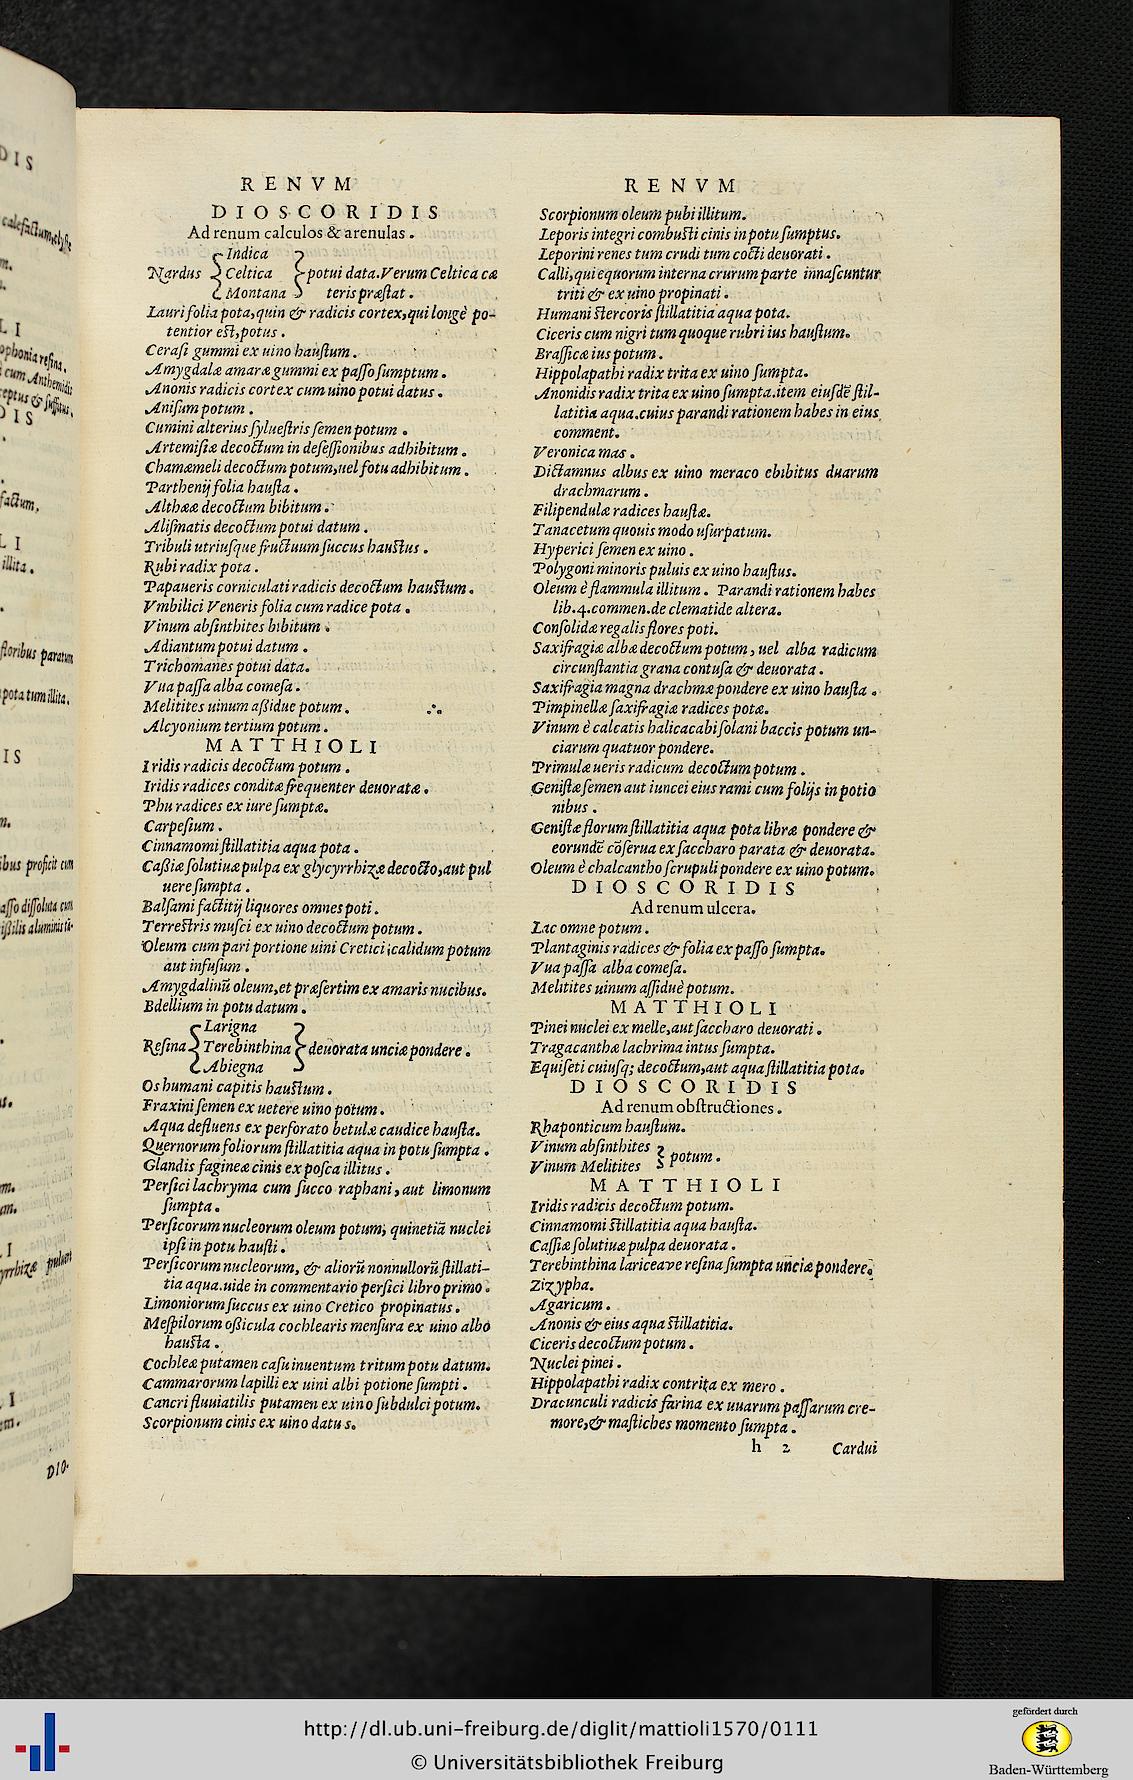 RENVM
DIOSCORIDIS
Ad renum calculos & arenulas.
Indica
Nardus Celtica potui data. Verum Celtica cæ
Montana teris præſtat.
Lauri folia pota, quin & radicis cortex, qui longè po-
tentior eſt, potus.
Ceraſi gummi ex uino hauſtum.
Amygdalæ amaræ gummi ex paſſo ſumptum.
Anonis radicis cortex cum uino potui datus.
Aniſum potum.
Cumini alterius ſylueſtris ſemen potum.
Artemiſiæ decoctum in deſeſſionibus adhibitum.
Chamæmeli decoctum potum, uel fotu adhibitum.
Parthenij folia hauſta.
Althææ decoctum bibitum.
Aliſmatis decoctum potui datum.
Tribuli utriuſque fructuum ſuccus hauſtus.
Rubi radix pota.
Papaueris corniculati radicis decoctum hauſtum.
Vmbilici Veneris folia cum radice pota.
Vinum abſinthites bibitum.
Adiantum potui datum.
Trichomanes potui data.
Vua paſſa alba comeſa.
Melitites uinum aßidue potum.
Alcyonium tertium potum.
MATTHIOLI
Iridis radicis decoctum potum.
Iridis radices conditæ frequenter deuoratæ.
Phu radices ex iure ſumptæ.
Carpeſium.
Cinnamomi ſtillatitia aqua pota.
Caßiæ ſolutiuæ pulpa ex glycyrrhizæ decocto, aut pul
uere ſumpta.
Balſami factitij liquores omnes poti.
Terreſtris muſci ex uino decoctum potum.
Oleum cum pari portione uini Cretici; calidum potum
aut infuſum.
Amygdalinũ oleum, et præſertim ex amaris nucibus.
Bdellium in potu datum.
Larigna
Reſina Terebinthina deuorata unciæ pondere.
Abiegna
Os humani capitis hauſtum.
Fraxini ſemen ex uetere uino potum.
Aqua defluens ex perforato betulæ caudice hauſta.
Quernorum foliorum ſtillatitia aqua in potu ſumpta.
Glandis fagineæ cinis ex poſca illitus.
Perſici lachryma cum ſucco raphani, aut limonum
ſumpta.
Perſicorum nucleorum oleum potum, quinetiã nuclei
ipſi in potu hauſti.
Perſicorum nucleorum, & aliorũ nonnullorũ ſtillati-
tia aqua. uide in commentario perſici libro primo.
Limoniorum ſuccus ex uino Cretico propinatus.
Meſpilorum oßicula cochlearis menſura ex uino albo
hauſta.
Cochleæ putamen caſu inuentum tritum potu datum.
Cammarorum lapilli ex uini albi potione ſumpti.
Cancri fluuiatilis putamen ex uino ſubdulci potum.
Scorpionum cinis ex uino datus.
RENVM
Scorpionum oleum pubi illitum.
Leporis integri combuſti cinis in potu ſumptus.
Leporini renes tum crudi tum cocti deuorati.
Calli, qui equorum interna crurum parte innaſcuntur
triti & ex uino propinati.
Humani ſtercoris ſtillatitia aqua pota.
Ciceris cum nigri tum quoque rubri ius hauſtum.
Braſſicæ ius potum.
Hippolapathi radix trita ex uino ſumpta.
Anonidis radix trita ex uino ſumpta. item eiuſdẽ ſtil-
latitia aqua. cuius parandi rationem habes in eius
comment.
Veronica mas.
Dictamnus albus ex uino meraco ebibitus duarum
drachmarum.
Filipendulæ radices hauſtæ.
Tanacetum quouis modo uſurpatum.
Hyperici ſemen ex uino.
Polygoni minoris puluis ex uino hauſtus.
Oleum è flammula illitum. Parandi rationem habes
lib.4.commen.de clematide altera.
Conſolidæ regalis flores poti.
Saxifragiæ albæ decoctum potum, uel alba radicum
circunſtantia grana contuſa & deuorata.
Saxifragia magna drachmæ pondere ex uino hauſta.
Pimpinellæ ſaxifragiæ radices potæ.
Vinum è calcatis halicacabi ſolani baccis potum un-
ciarum quatuor pondere.
Primulæ ueris radicum decoctum potum.
Geniſtæ ſemen aut iuncei eius rami cum folijs in potio
nibus.
Geniſtæ florum ſtillatitia aqua pota libræ pondere &
eorundẽ cõſerua ex ſaccharo parata & deuorata.
Oleum è chalcantho ſcrupuli pondere ex uino potum.
DIOSCORIDIS
Ad renum ulcera.
Lac omne potum.
Plantaginis radices & folia ex paſſo ſumpta.
Vua paſſa alba comeſa.
Melitites uinum aſſiduè potum.
MATTHIOLI
Pinei nuclei ex melle, aut ſaccharo deuorati.
Tragacanthæ lachrima intus ſumpta.
Equiſeti cuiuſq; decoctum, aut aqua ſtillatitia pota.
DIOSCORIDIS
Ad renum obſtructiones.
Rhaponticum hauſtum.
Vinum abſinthites
Vinum Melitites potum.
MATTHIOLI
Iridis radicis decoctum potum.
Cinnamomi ſtillatitia aqua hauſta.
Caſſiæ ſolutiuæ pulpa deuorata.
Terebinthina lariceave reſina ſumpta unciæ pondere.
Zizypha.
Agaricum.
Anonis & eius aqua ſtillatitia.
Ciceris decoctum potum.
Nuclei pinei.
Hippolapathi radix contrita ex mero.
Dracunculi radicis farina ex uuarum paſſarum cre-
more, & maſtiches momento ſumpta.
h 2 Cardui
http://dl.ub.uni-freiburg.de/diglit/mattioli1570/0111
© Universitätsbibliothek Freiburg
gefördert durch
Baden-Württemberg